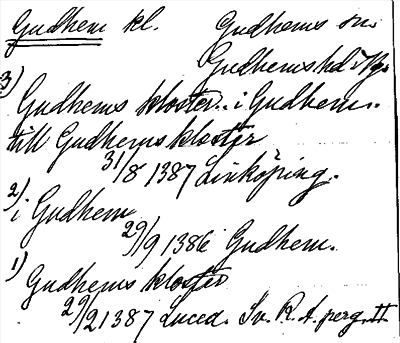 Gudhem kl. Gudhems sn.
Gudhems hd Vg.
3) Gudhems kloster i Gudhem.
till Gudhems kloster
31/8 1387 Linköping.
2) i Gudhem
29/9 1386 Gudhem.
1) Gudhems kloster
29/2 1387 Lucca. Sv. R. A. perg. II